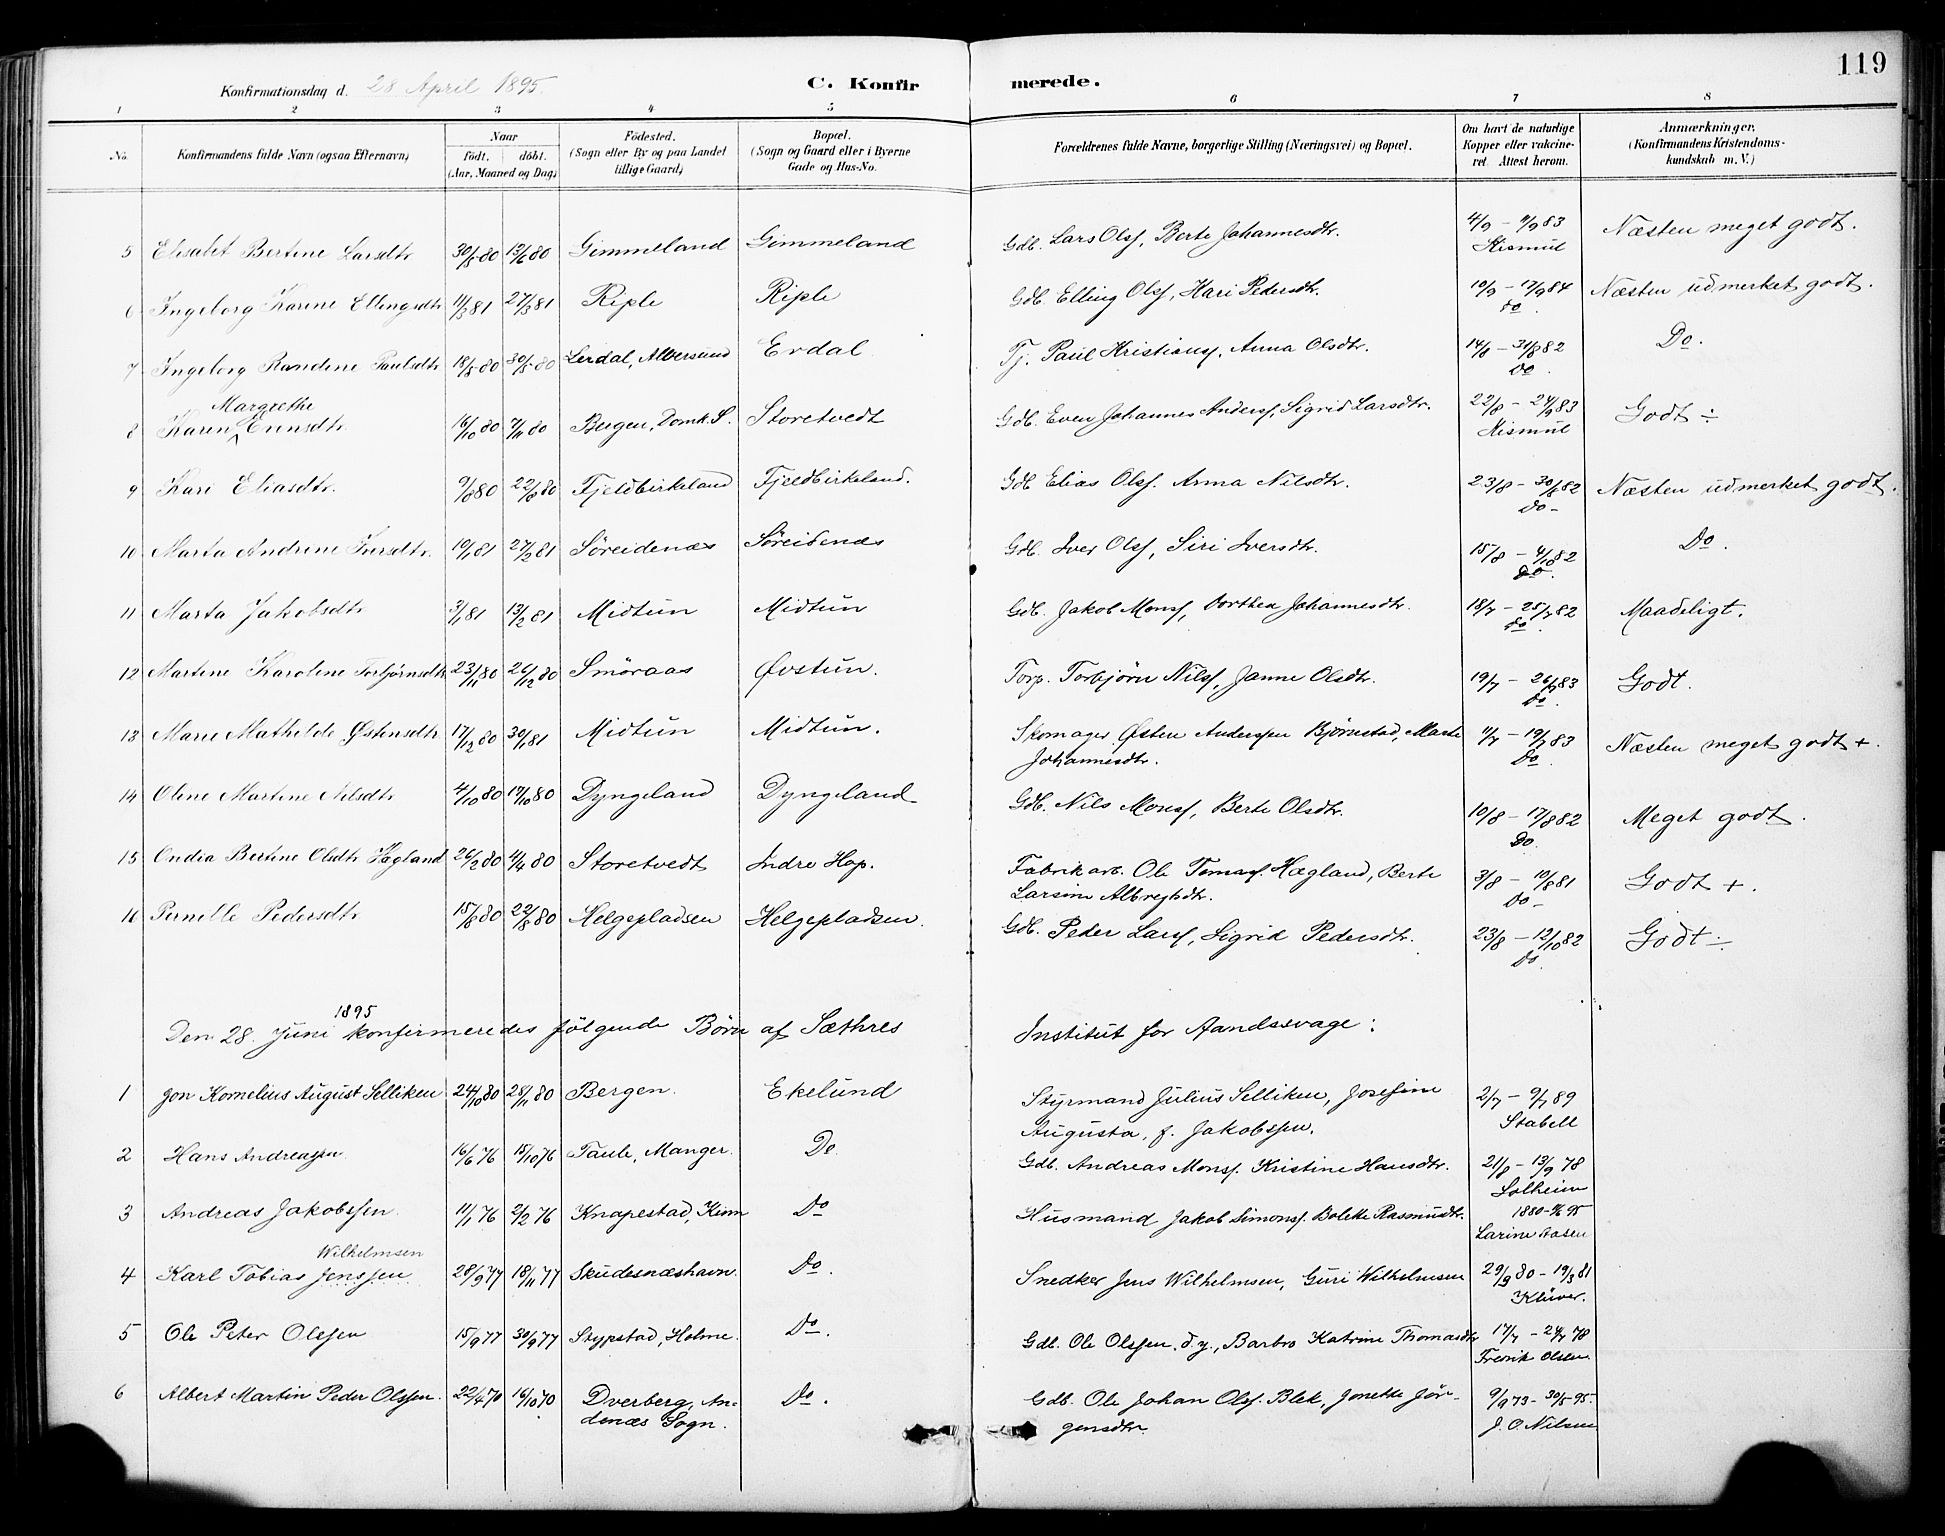 119
Konfirmationsdag d. 28 April 1895.
C. Konfirmerede.
1 2 3 4 5 6 7 8
No. Konfirmandens fulde Navn (ogsaa Efternavn) Naar født. døbt. (Aar, Maaned og Dag) Fødested. (Sogn eller By og paa Landet tillige Gaard) Bopæl. (Sogn og Gaard eller i Byerne Gade og Hus-No. Forældrenes fulde Navne, borgerlige Stilling (Næringsvei) og Bopæl. Om havt de naturlige Kopper eller vakcineret. Attest herom. Anmærkninger. (Konfirmandens Kristendomskundskab m. V.)
5 Elisabet Bertine Larsdtr 30/5 80 13/6 80 Gimmeland Gimmeland Gdb. Lars Olsf, Berte Johannesdtr. 4/9 - 9/9 83 Kismul Næsten meget godt.
6 Ingeborg Karine Ellingsdtr 11/3 81 27/3 81 Riple Riple Gdb. Elling Olsf, Hari Pedersdtr. 10/9 - 17/9 84 do Næsten udmerket godt.
7 Ingeborg Randine Paulsdtr 18/5 80 30/5 80 Lerdal, Alversund Erdal Tj. Paul Kristiansf, Anna Olsdtr. 14/8 - 31/8 82 Do. Do.
8 Karen Margrethe Evensdtr 16/10 80 7/11 80 Bergen, Domk. S. Storetvedt Gdb. Even Johannes Andersf, Sigrid Larsdtr. 22/8 - 24/9 83 Kismul Godt ÷
9 Kari Eliasdtr. 9/8 80 22/8 80 Fjeldbirkeland Fjeldbirkeland. Gdb Elias Olsf. Anna Nilsdtr. 23/8 - 30/8 82 Do - Næsten udmerket godt.
10 Marta Andrine Iversdtr. 19/1 81 27/2 81 Søreidenæs Søreidenæs Gdb. Iver Olsf, Siri Iversdtr. 15/8 - 4/10 82 Do. Do.
11 Marta Jakobsdtr 3/1 81 13/2 81 Midtun Midtun Gdb. Jakob Monsf, Dorthea Johannesdtr. 18/7 - 25/7 82 do Maadeligt.
12 Martine Karoline Torbjørnsdtr 23/11 80 26/12 80 Smøraas Øvstun. Torp. Torbjørn Nilsf, Janne Olsdtr. 19/7 - 26/7 83 Do. Godt.
13 Marie Mathilde Østensdtr 17/12 80 30/1 81 Midtun Midtun. Skomager Østen Anderssen Bjørnestad, Marta Johannesdtr. 11/7 - 19/7 83 Do. Næsten meget godt +.
14 Oline Martine Nilsdtr 4/10 80 17/10 80 Dyngeland Dyngeland Gdb. Nils Monsf, Berte Olsdtr. 10/8 - 17/8 82 Do. Meget godt.
15 Ondia Bertine Olsdtr Hægland 26/2 80 4/4 80 Storetvedt Indre Hop. Fabrikarb. Ole Tomasf. Hægland, Berte Larsine Albregtsdtr. 3/8 - 10/8 81 Do - Godt +.
16 Pernille Pedersdtr 15/8 80 22/8 80 Helgepladsen Helgepladsen. Gdb. Peder Larsf, Sigrid Pedersdtr. 23/8 - 12/10 82 Do Godt ÷
Den 28. Juni 1895 konfirmeredes følgende Børn af Sæthres Institut for Aandssvage:
1 Jon Kornelius August Selliken 24/10 80 28/11 80 Bergen. Ekelund Styrmand Julius Selliken, Josefine Augusta, f. Jakobssen. 2/7 - 9/7 89 Stabell
2 Hans Andreassen 16/6 76 15/10 76 Taule, Manger. Do Gdb. Andreas Monsf. Kristine Hansdtr. 21/8 - 13/9 78 Solheim
3 Andreas Jakobssen. 11/1 76 2/2 76 Knapestad, Kinn Do Husmand Jakob Simonsf. Bolette Rasmusdtr. 1880 - 95 Larine Aasen
4 Karl Tobias Jenssen Wilhelmsen 28/9 77 18/11 77 Skudesnæshavn. Do. Snedker Jens Wilhelmsen, Guri Wilhelmsen 29/9 80 - 19/3 81 Klüver.
5 Ole Peter Olessen 15/9 77 30/9 77 Stypstad, Holme. Do. Gdb. Ole Olssen. d.y., Barbro Katrine Thomasdtr 17/7 - 24/7 78 Fredrik Olsen.
6 Albert Martin Peder Olssen. 22/4 70 16/10 70 Dverberg, Andenæs Sogn. Do. Gdb. Ole Johan Olsf. Blek, Jonette Jørgensdtr. 9/9 73 - 30/5 95. J. O. Nilsen